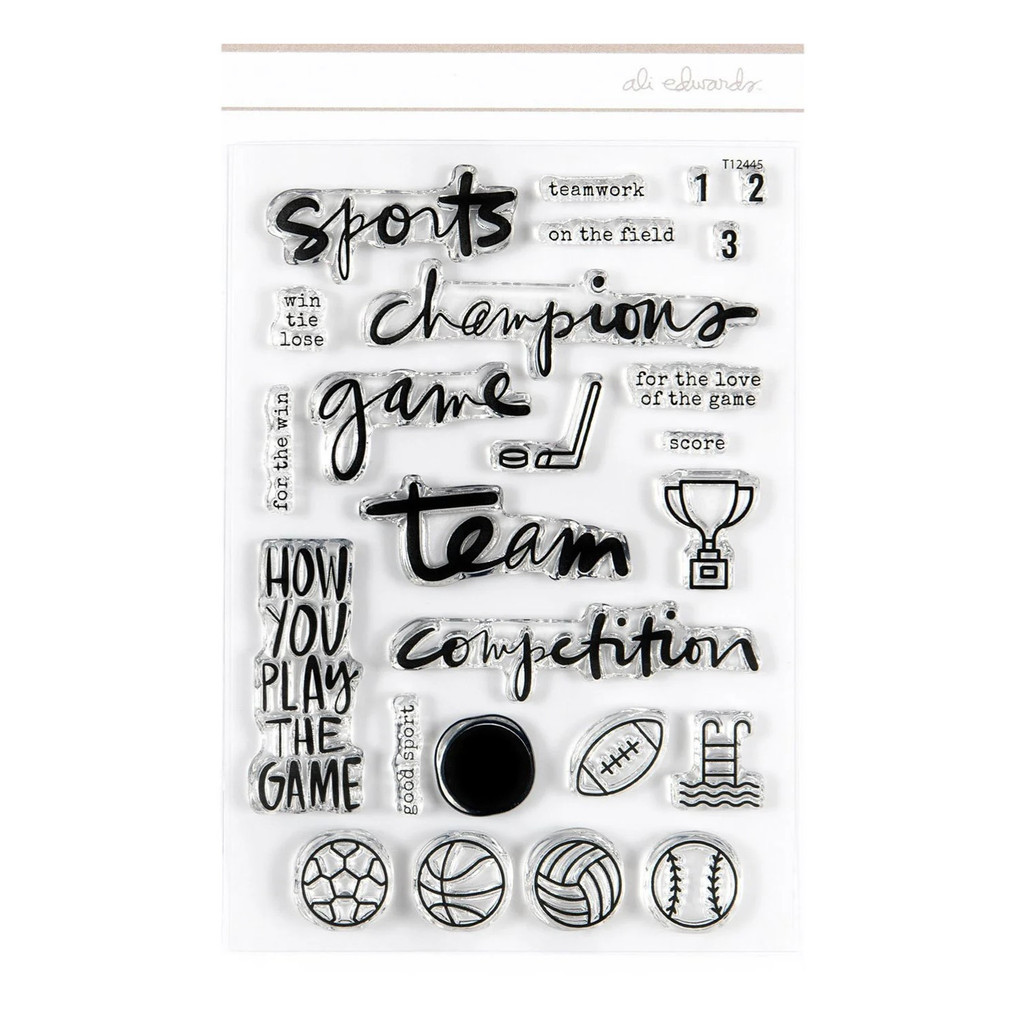 ali edwards
T12445
sports
teamwork
1 2
on the field
3
champions
win
tie
lose
game
for the love
of the game
for the win
score
team
HOW
YOU
PLAY
THE
GAME
competition
good sport